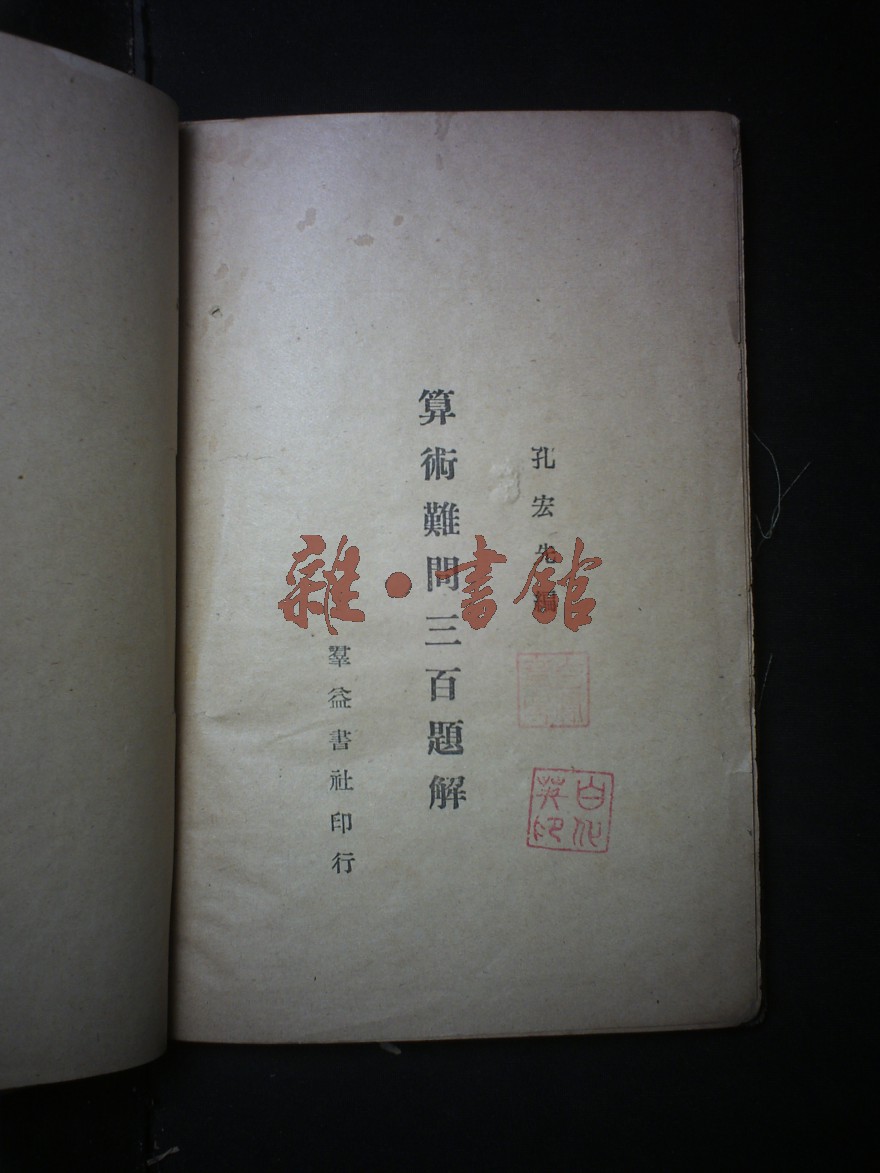 孔宏先編
算術難問三百題解
羣益書社印行
雜·書館
白化
英印